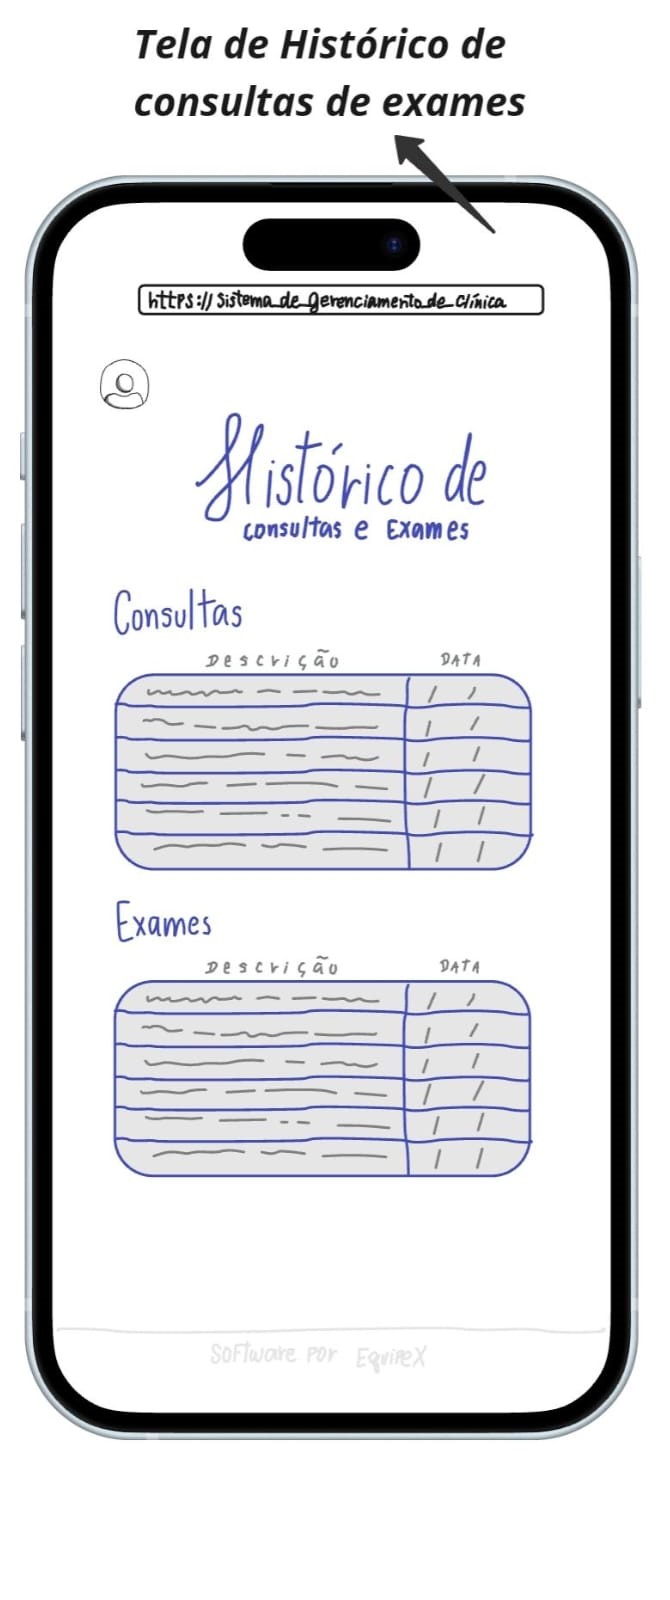 Tela de Histórico de
consultas de exames
https://Sistema_de_Gerenciamento_de_Clínica
Histórico de
consultas e Exames
Consultas
Descrição DATA
/ /
/ /
/ /
/ /
/ /
/ /
Exames
Descrição DATA
/ /
/ /
/ /
/ /
/ /
/ /
Software por EquipeX